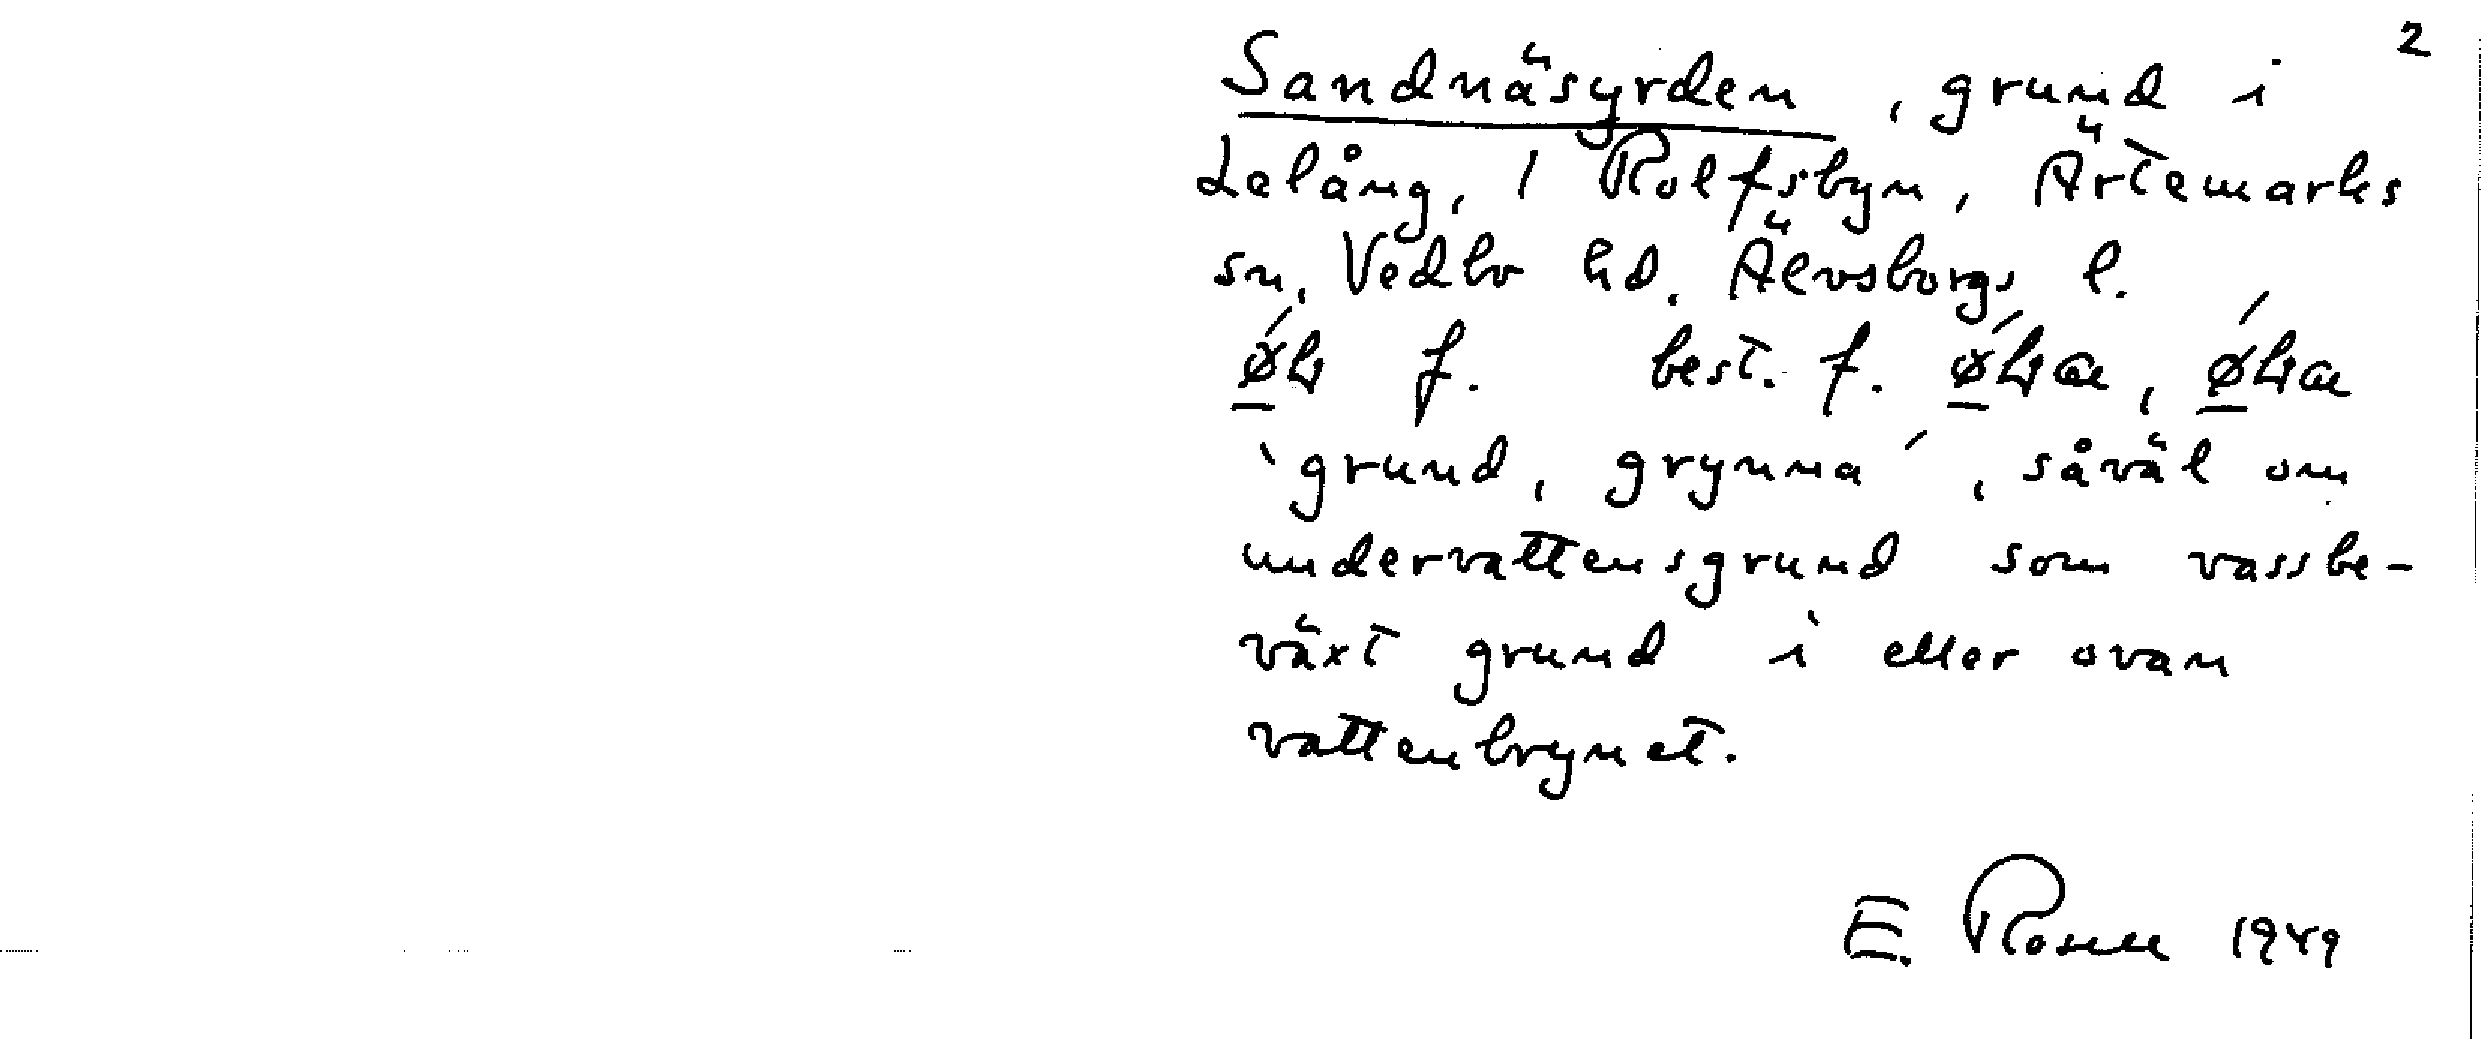 2
Sandnäsyrden, grund i
Lelång, 1 Rolfsbyn, Ärtemarks
sn, Vedbo hd. Älvsborgs l.
f. best. f.
`grund, grynna´, såväl om
undervattensgrund som vassbe-
växt grund i eller ovan
vattenbrynet.
E. Rosell 1949